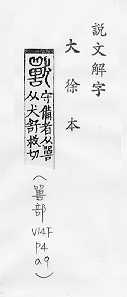 說文解字
大徐本
獸
守備者从嘼
从犬舒救切
(嘼部
V14F
P4
a9)